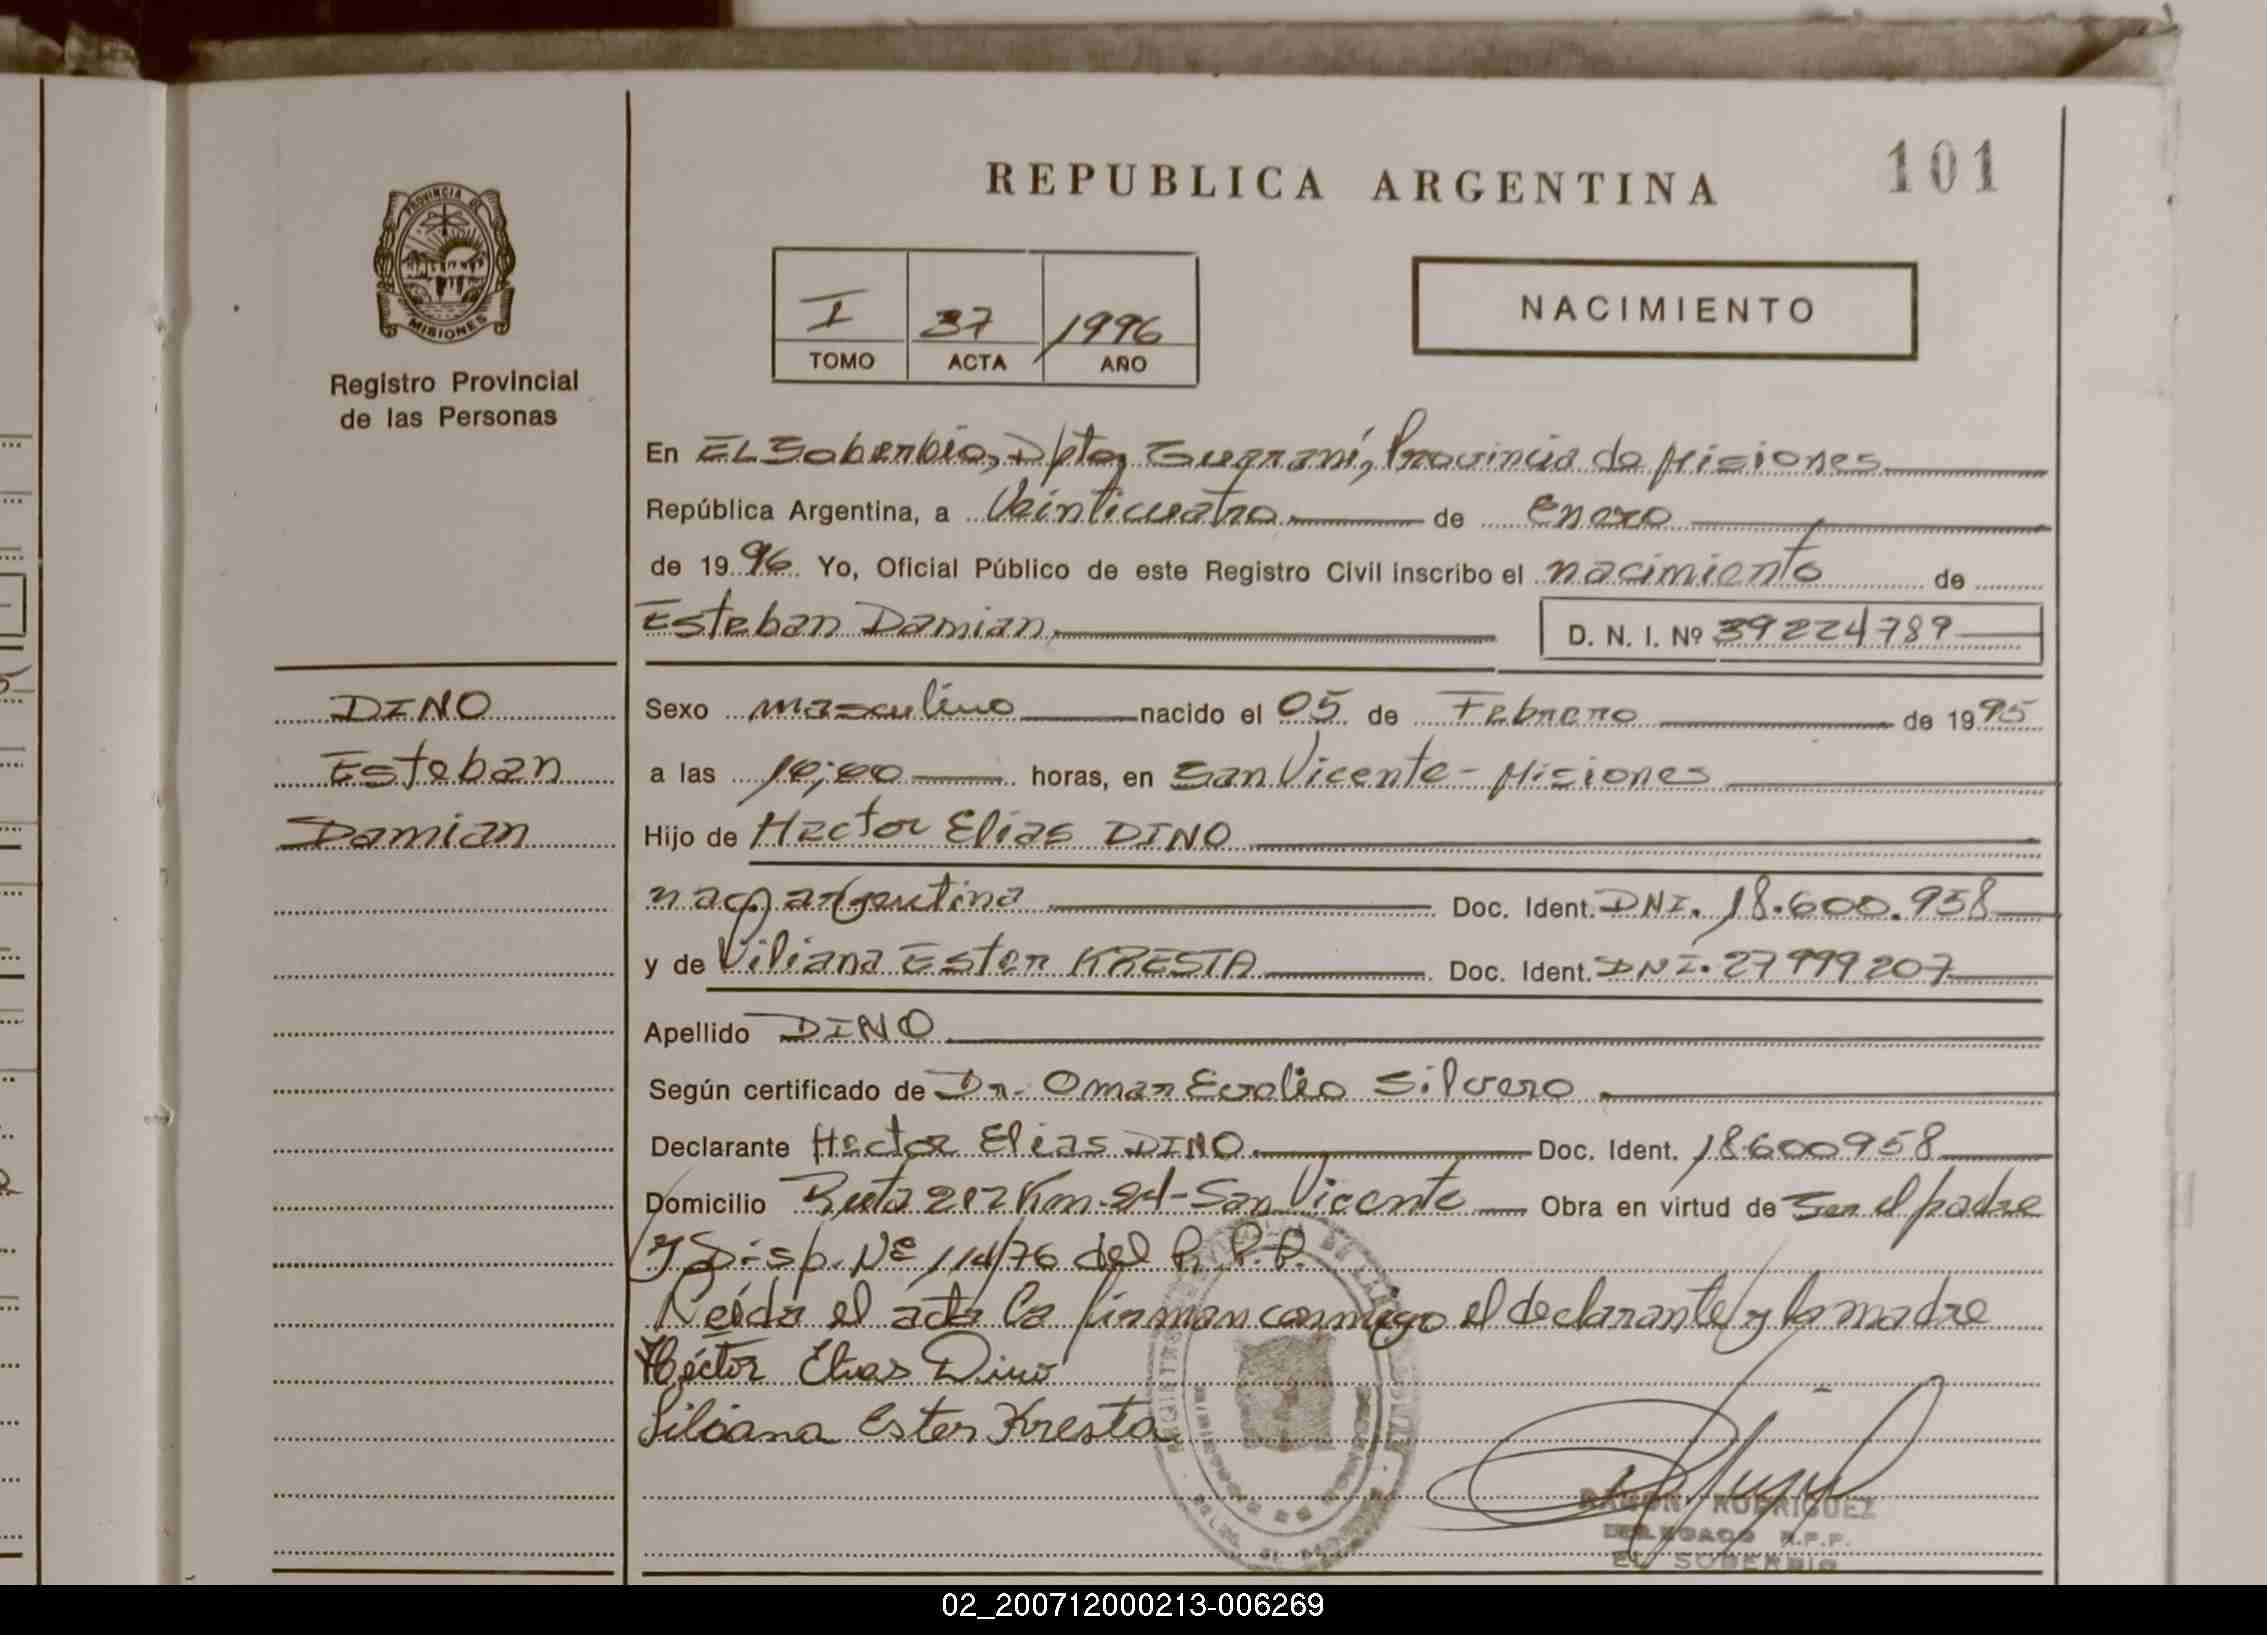 REPUBLICA ARGENTINA
101
PROVINCIA DE
MISIONES
Registro Provincial
de las Personas
I 37 1996
TOMO ACTA AÑO
NACIMIENTO
En EL Soberbio, Dpto, Guaraní, Provincia de Misiones
República Argentina, a Veinticuatro de Enero
de 1996 Yo, Oficial Público de este Registro Civil inscribo el nacimiento de
Esteban Damian D. N. I. Nº 39224789
DINO
Esteban
Damian
Sexo masculino nacido el 05 de Febrero de 1995
a las 10,00 horas, en San Vicente - Misiones
Hijo de Hector Elias DINO
nac. argentina Doc. Ident. DNI. 18.600.958
y de Liliana Ester KRESTA Doc. Ident. DNI. 27999207
Apellido DINO
Según certificado de Dr. Omar Evelio Silvero
Declarante Hector Elias DINO Doc. Ident. 18600958
Domicilio Ruta 212 Km. - San Vicente Obra en virtud de Ser el padre
y Disp. Nº 114/76 del R. P. P.
Leída el acta la firman conmigo el declarante y la madre
Héctor Elias Dino
Liliana Ester Kresta
RAMON RODRIGUEZ
DELEGADO R.P.P.
EL SOBERBIO
02_200712000213-006269